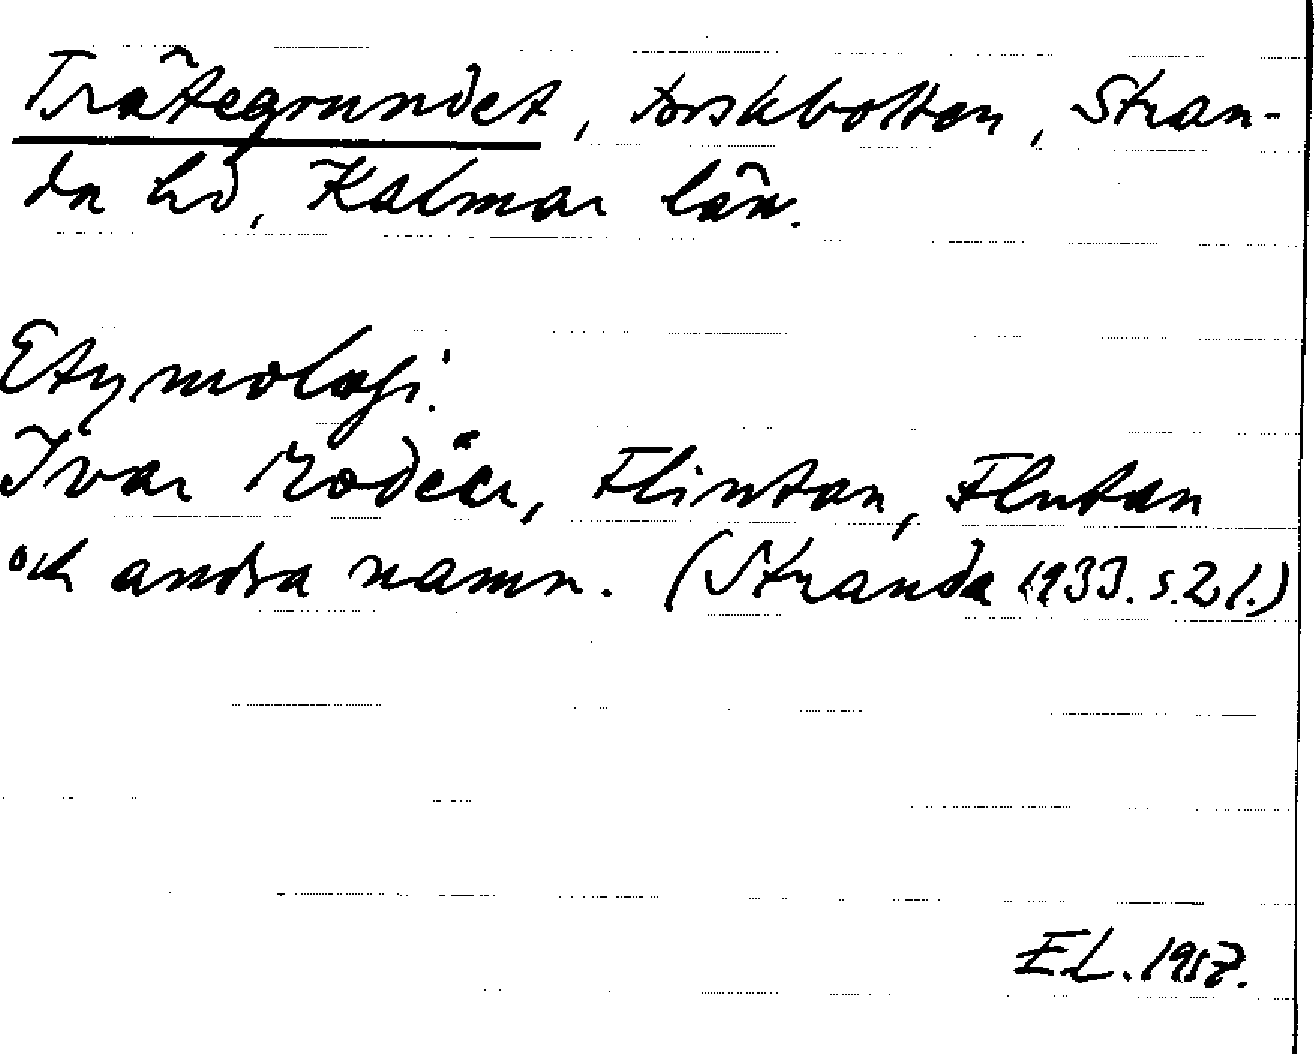 Trätegrundet, torskbotten, Stran-
da hd, Kalmar län.
Etymologi.
Ivar Modéer, Flintan, Flutan
och andra namn. (Stranda 1933. s. 21.)
EL. 1957.